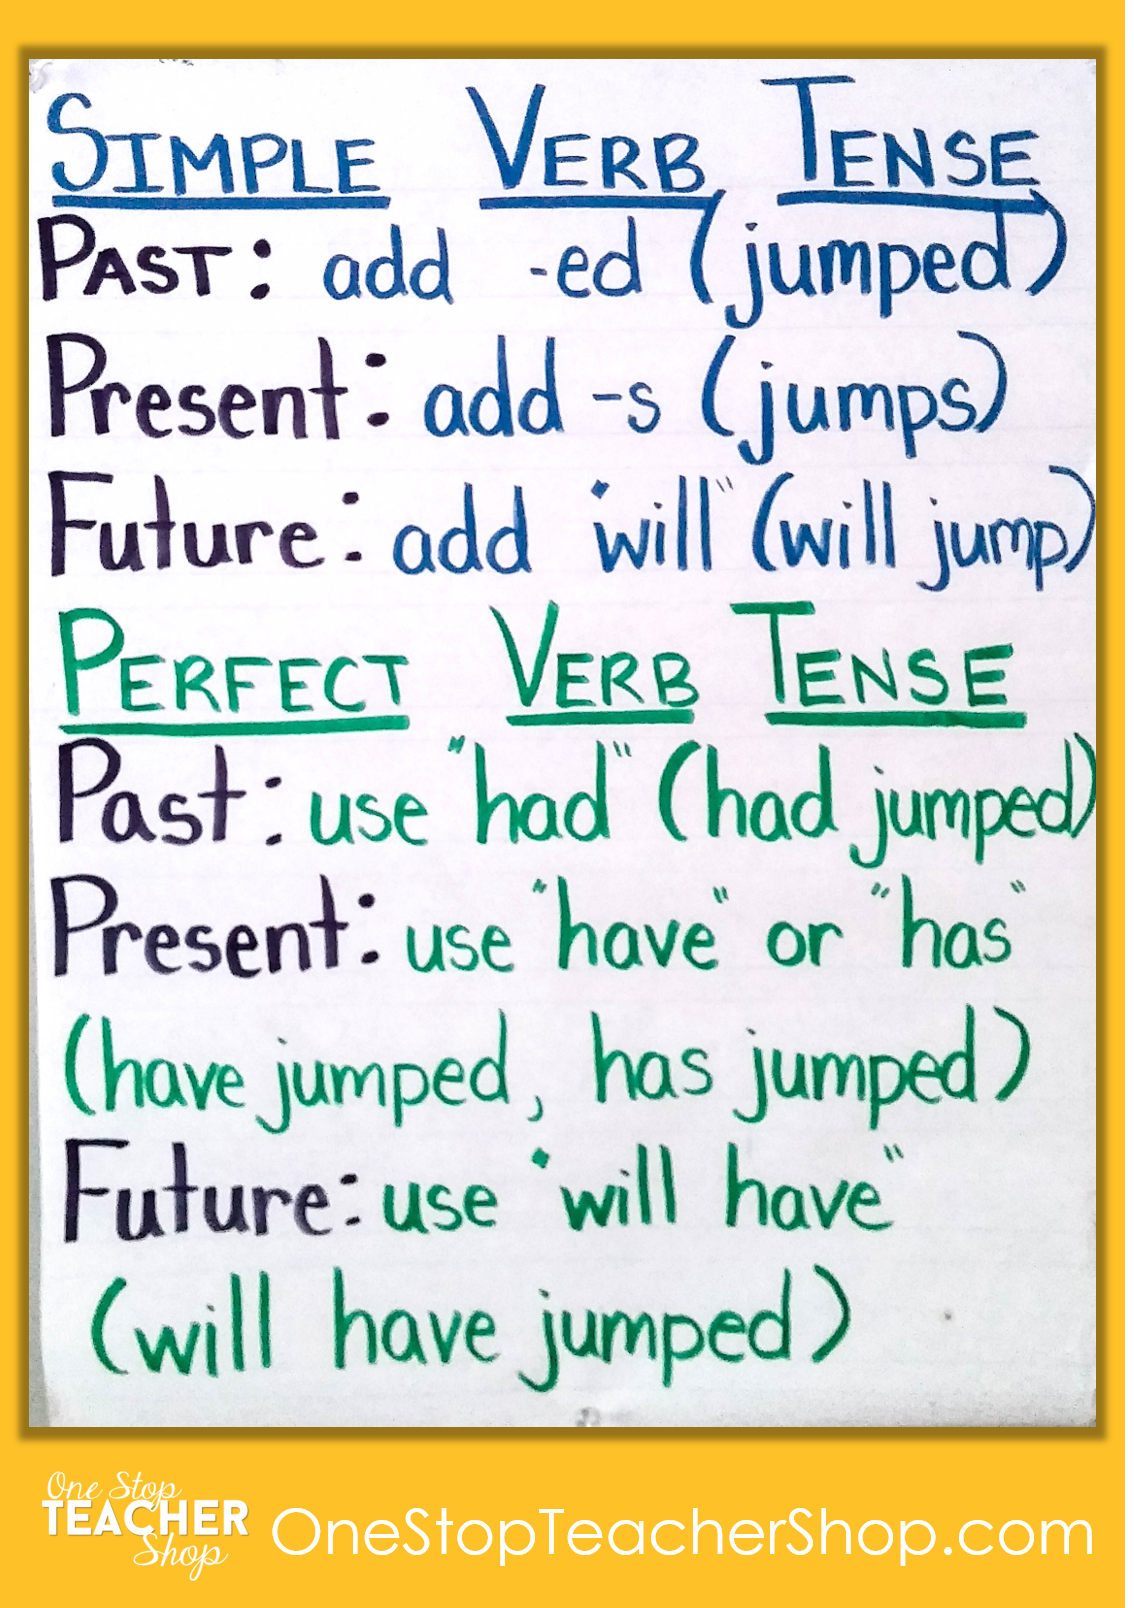 SIMPLE VERB TENSE
PAST: add -ed (jumped)
Present: add -s (jumps)
Future: add "will" (will jump)
PERFECT VERB TENSE
Past: use "had" (had jumped)
Present: use "have" or "has"
(have jumped, has jumped)
Future: use "will have"
(will have jumped)
One Stop
TEACHER
Shop
OneStopTeacherShop.com